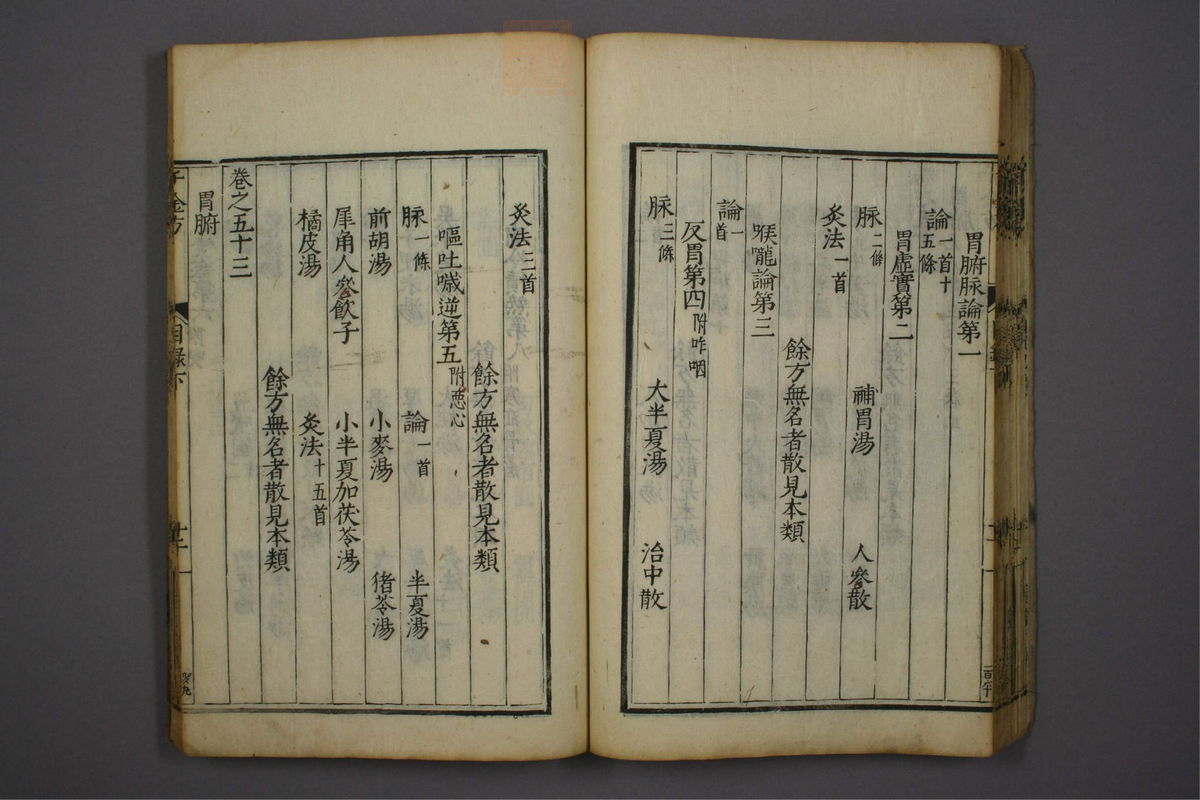 胃腑脉論第一
論一首十五條
胃虛實第二
脉二條 補胃湯 人參散
灸法一首
餘方無名者散見本類
喉嚨論第三
論一首
反胃第四附咋咽
脉三條 大半夏湯 治中散
灸法三首
餘方無名者散見本類
嘔吐噦逆第五附惡心
脉一條 論一首 半夏湯
前胡湯 小麥湯 猪苓湯
犀角人參飲子 小半夏加茯苓湯
橘皮湯 灸法十五首
餘方無名者散見本類
卷之五十三
胃腑
千金方 目錄下